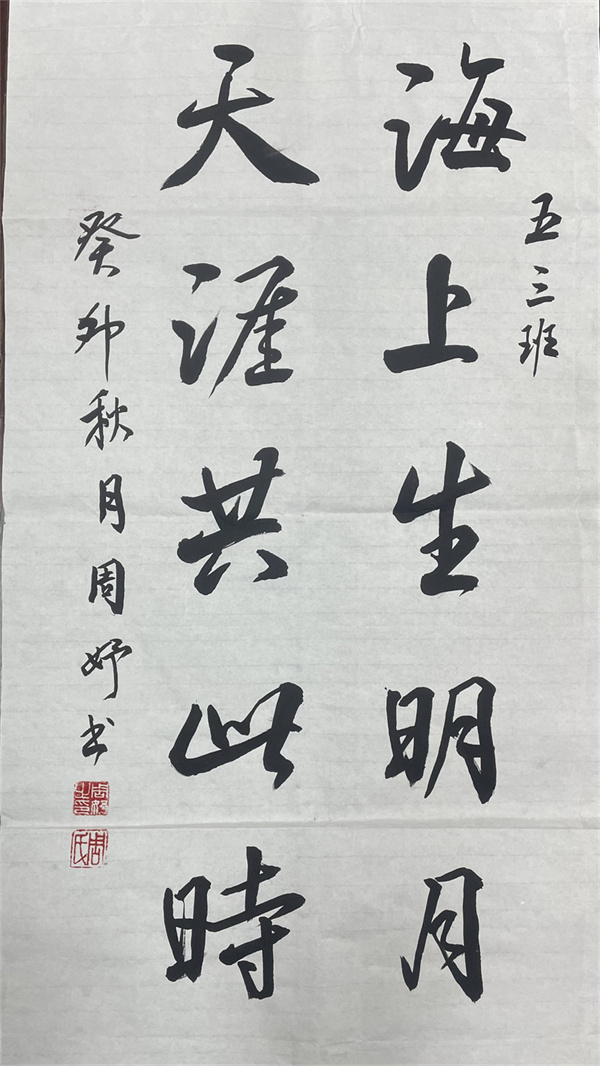 五三班
海上生明月
天涯共此時
癸卯秋月周妤书
周氏